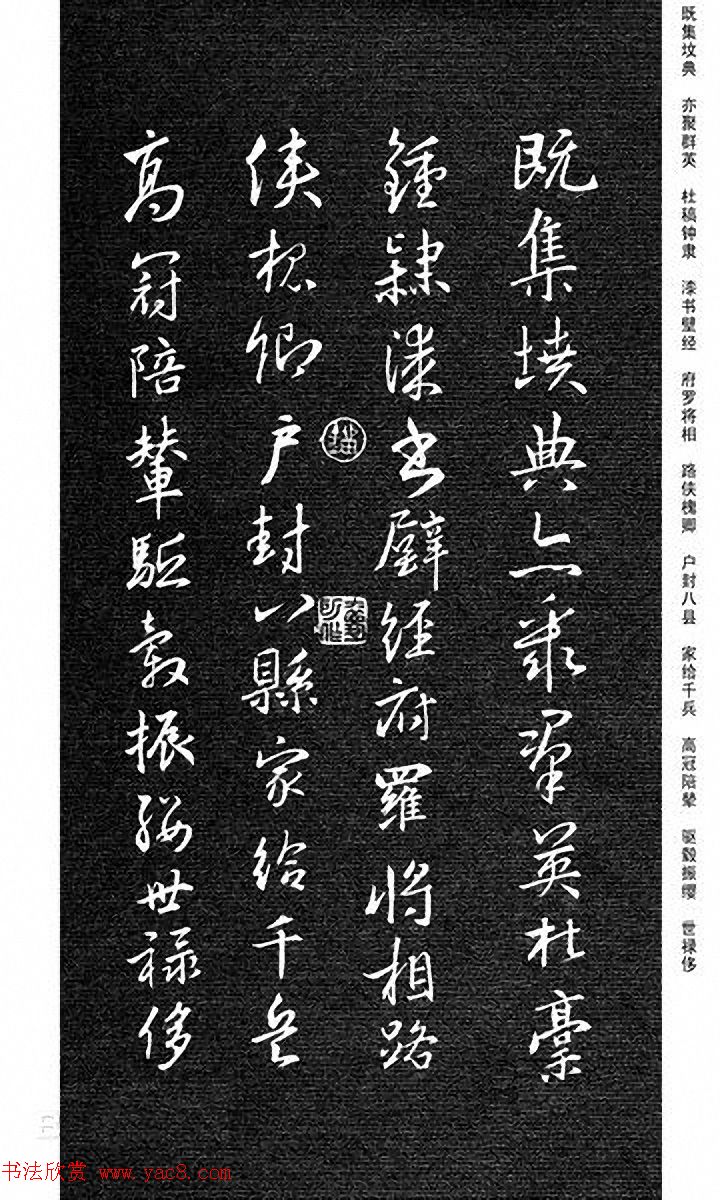 既集坟典 亦聚群英 杜稿钟隶 漆书壁经 府罗将相 路侠槐卿 户封八县 家给千兵 高冠陪辇 驱毂振缨 世禄侈
既集墳典亦聚羣英杜稾
鍾隸漆書壁經府羅將相路
俠槐卿戶封八縣家給千兵
高冠陪輦駈轂振纓世祿侈
书法欣赏 www.yac8.com